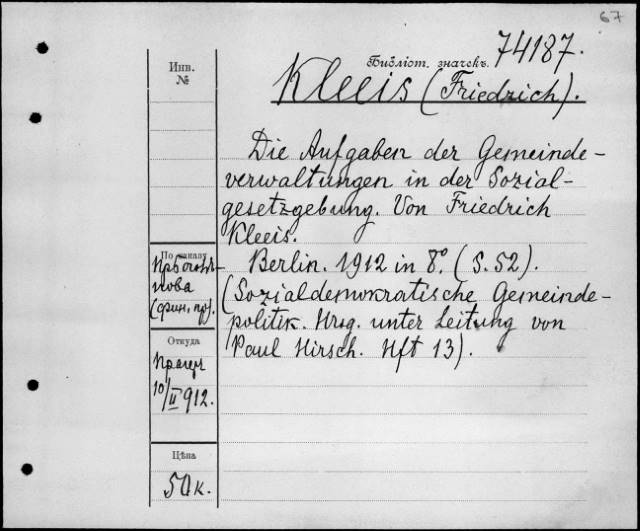 67
Библіот. значекъ.
74187.
Инв.
№
Kleeis (Friedrich).
Die Aufgaben der Gemeinde-
verwaltungen in der Sozial-
gesetzgebung. Von Friedrich
Kleeis.
Berlin. 1912 in 8º. (S. 52).
(Sozialdemokratische Gemeinde-
politik. Hrsg. unter Leitung von
Paul Hirsch. Hft 13).
По каналу
нова
Откуда
10/II 912.
Цѣна
50 к.